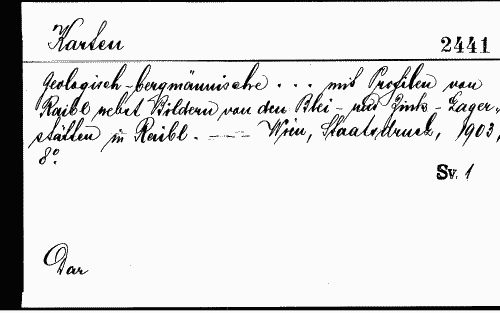 Karten
2441
Geologisch-bergmännische . . . mit Profilen von
Raibl nebst Bildern von den Blei- und Zink-Lager-
stätten in Raibl. — — Wien, Staatsdruck, 1903,
8°.
Sv. 1
Dar